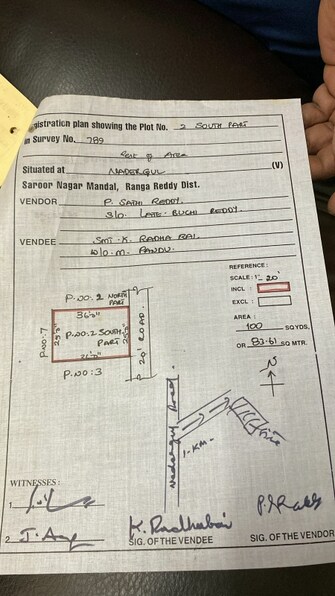 gistration plan showing the Plot No. 2 SOUTH PART
in Survey No. 789
Situated at NADERGUL (V)
Saroor Nagar Mandal, Ranga Reddy Dist.
VENDOR P. SATHI REDDY.
S/O. LATE. BUCHI REDDY.
VENDEE SMT. K. RADHA BAI.
W/O. M. PANDU.
REFERENCE:
SCALE: 1"= 20'
INCL :
EXCL :
AREA :
100 SQ YDS,
OR 83.61 SQ MTR.
P.NO: 2 NORTH PART
36'0"
P.NO: 7
25'0"
P.NO: 2 SOUTH PART
25'0"
36'0"
20' ROAD
P.NO: 3
N
Nadergul Road
1-KM-
WITNESSES :
1
2
K. Radhabai
SIG. OF THE VENDEE
SIG. OF THE VENDOR